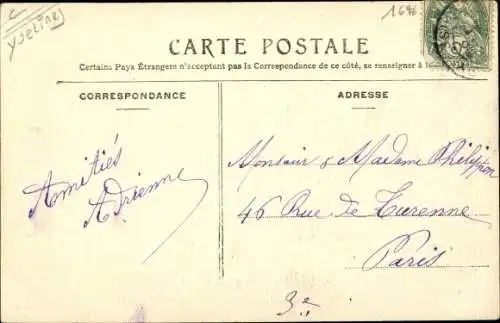 Yseline
1646
CARTE POSTALE
Certains Pays Étrangers n'acceptent pas la Correspondance de ce côté, se renseigner à
CORRESPONDANCE
ADRESSE
Amitiés
Adrienne
Monsieur & Madame Philippon
46 Rue de Turenne
Paris
3e